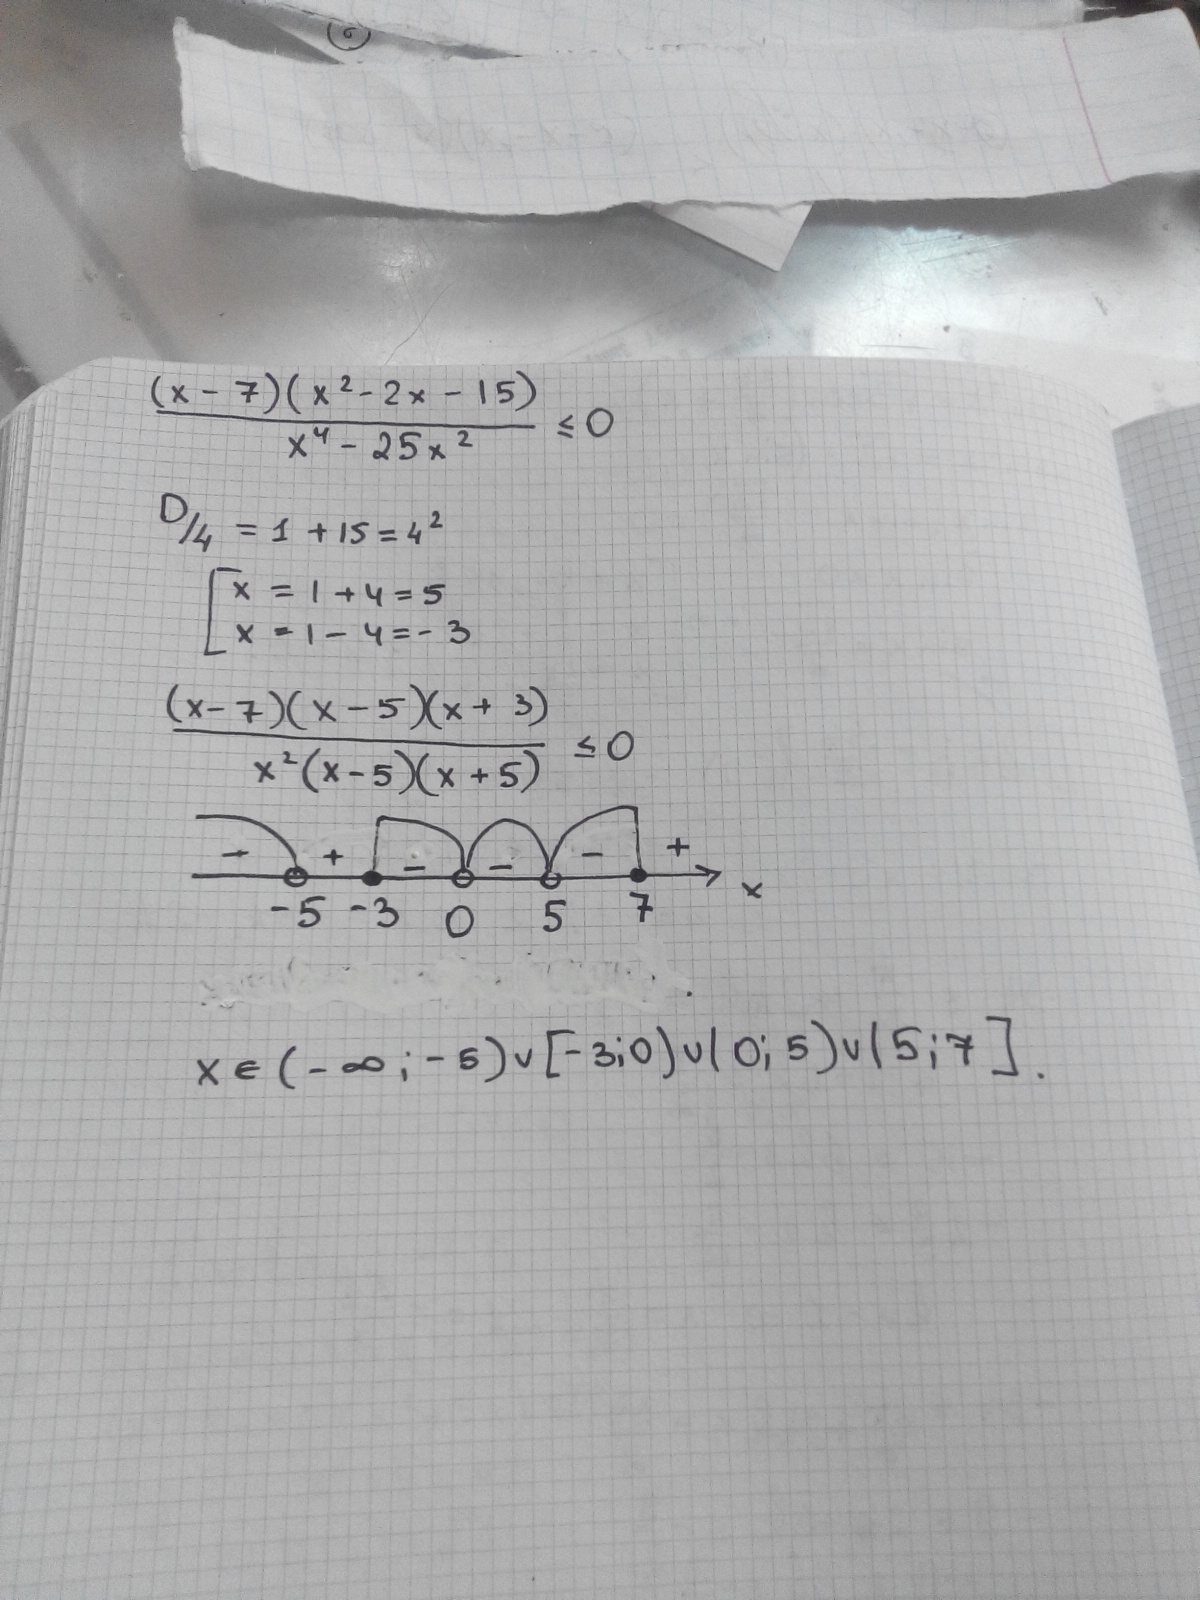 (x - 7)(x² - 2x - 15)
x⁴ - 25x² ≤ 0
D/4 = 1 + 15 = 4²
x = 1 + 4 = 5
x = 1 - 4 = - 3
(x - 7)(x - 5)(x + 3)
x²(x - 5)(x + 5) ≤ 0
- + - - - +
-5 -3 0 5 7 x
x ∈ (- ∞ ; - 5) ∪ [- 3; 0) ∪ ( 0; 5) ∪ ( 5; 7 ] .